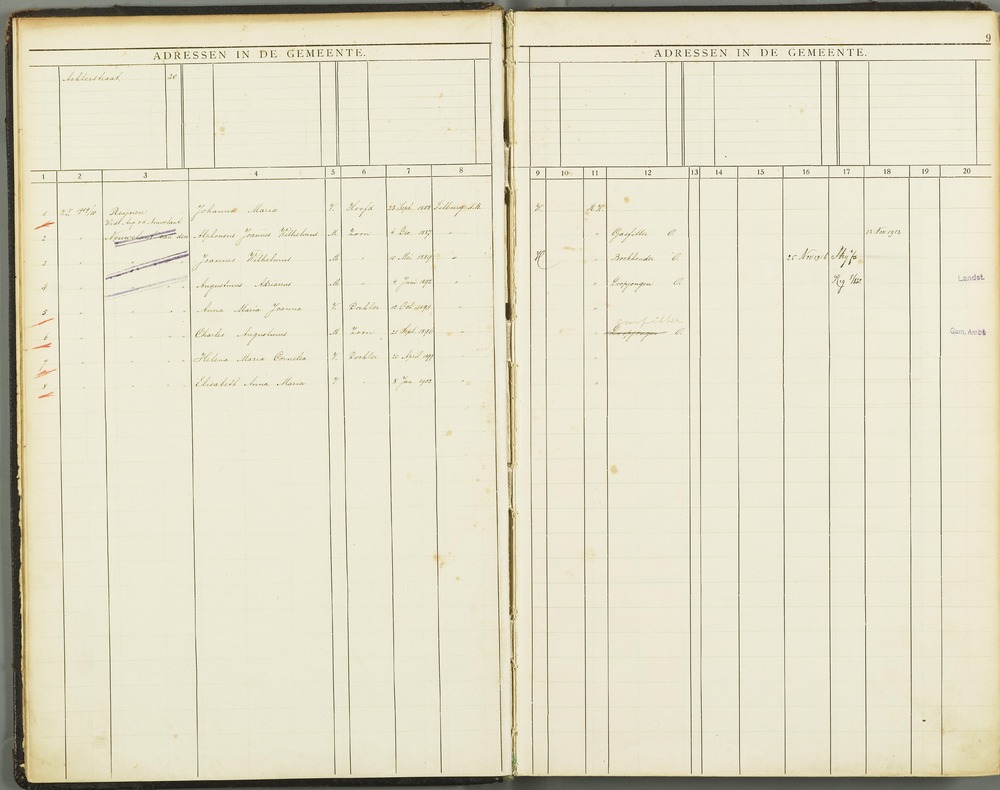 ADRESSEN IN DE GEMEENTE.
Achterstraat 20
1 2 3 4 5 6 7 8
1 Reijnen Johanna Maria V. Hoofd 23 Sept. Tilburg
Wed. Aug. v.d. Nouweland
2 Nouweland van den Alphonsus Joannes Wilhelmus M. Zoon 4 Dec. 1887
3 Joannes Wilhelmus M. 10 Mei 1889
4 Augustinus Adrianus M. 7 Juni 1892
5 Anna Maria Joanna V. Dochter 10 Oct. 1894
6 Charles Augustinus M. Zoon 21 Sept. 1896
7 Helena Maria Cornelia V. Dochter 20 April 1899
8 Elisabeth Anna Maria V 8 Jan. 1902
9
ADRESSEN IN DE GEMEENTE.
9 10 11 12 13 14 15 16 17 18 19 20
W. R.K.
Gasfitter O. 13 Nov. 1913
H Boekhouder O. 25 Nov 1916
Loopjongen O. Landst.
gasfitter
Loopjongen O. Gem. Ambt